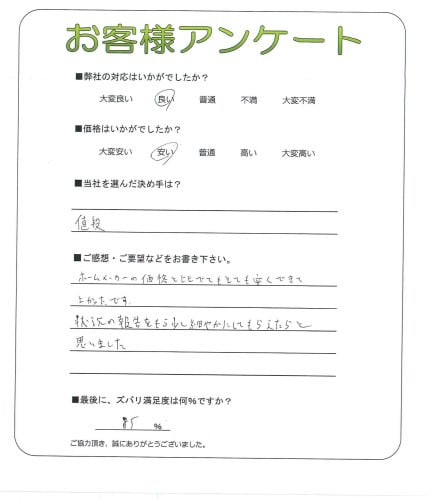 お客様アンケート
■弊社の対応はいかがでしたか？
大変良い 良い 普通 不満 大変不満
■価格はいかがでしたか？
大変安い 安い 普通 高い 大変高い
■当社を選んだ決め手は？
値段
■ご感想・ご要望などをお書き下さい。
ホームメーカーの価格と比べてもとても安くできて
よかったです。
状況の報告をもう少し細やかにしてもらえたらと
思いました
■最後に、ズバリ満足度は何%ですか？
85 %
ご協力頂き、誠にありがとうございました。